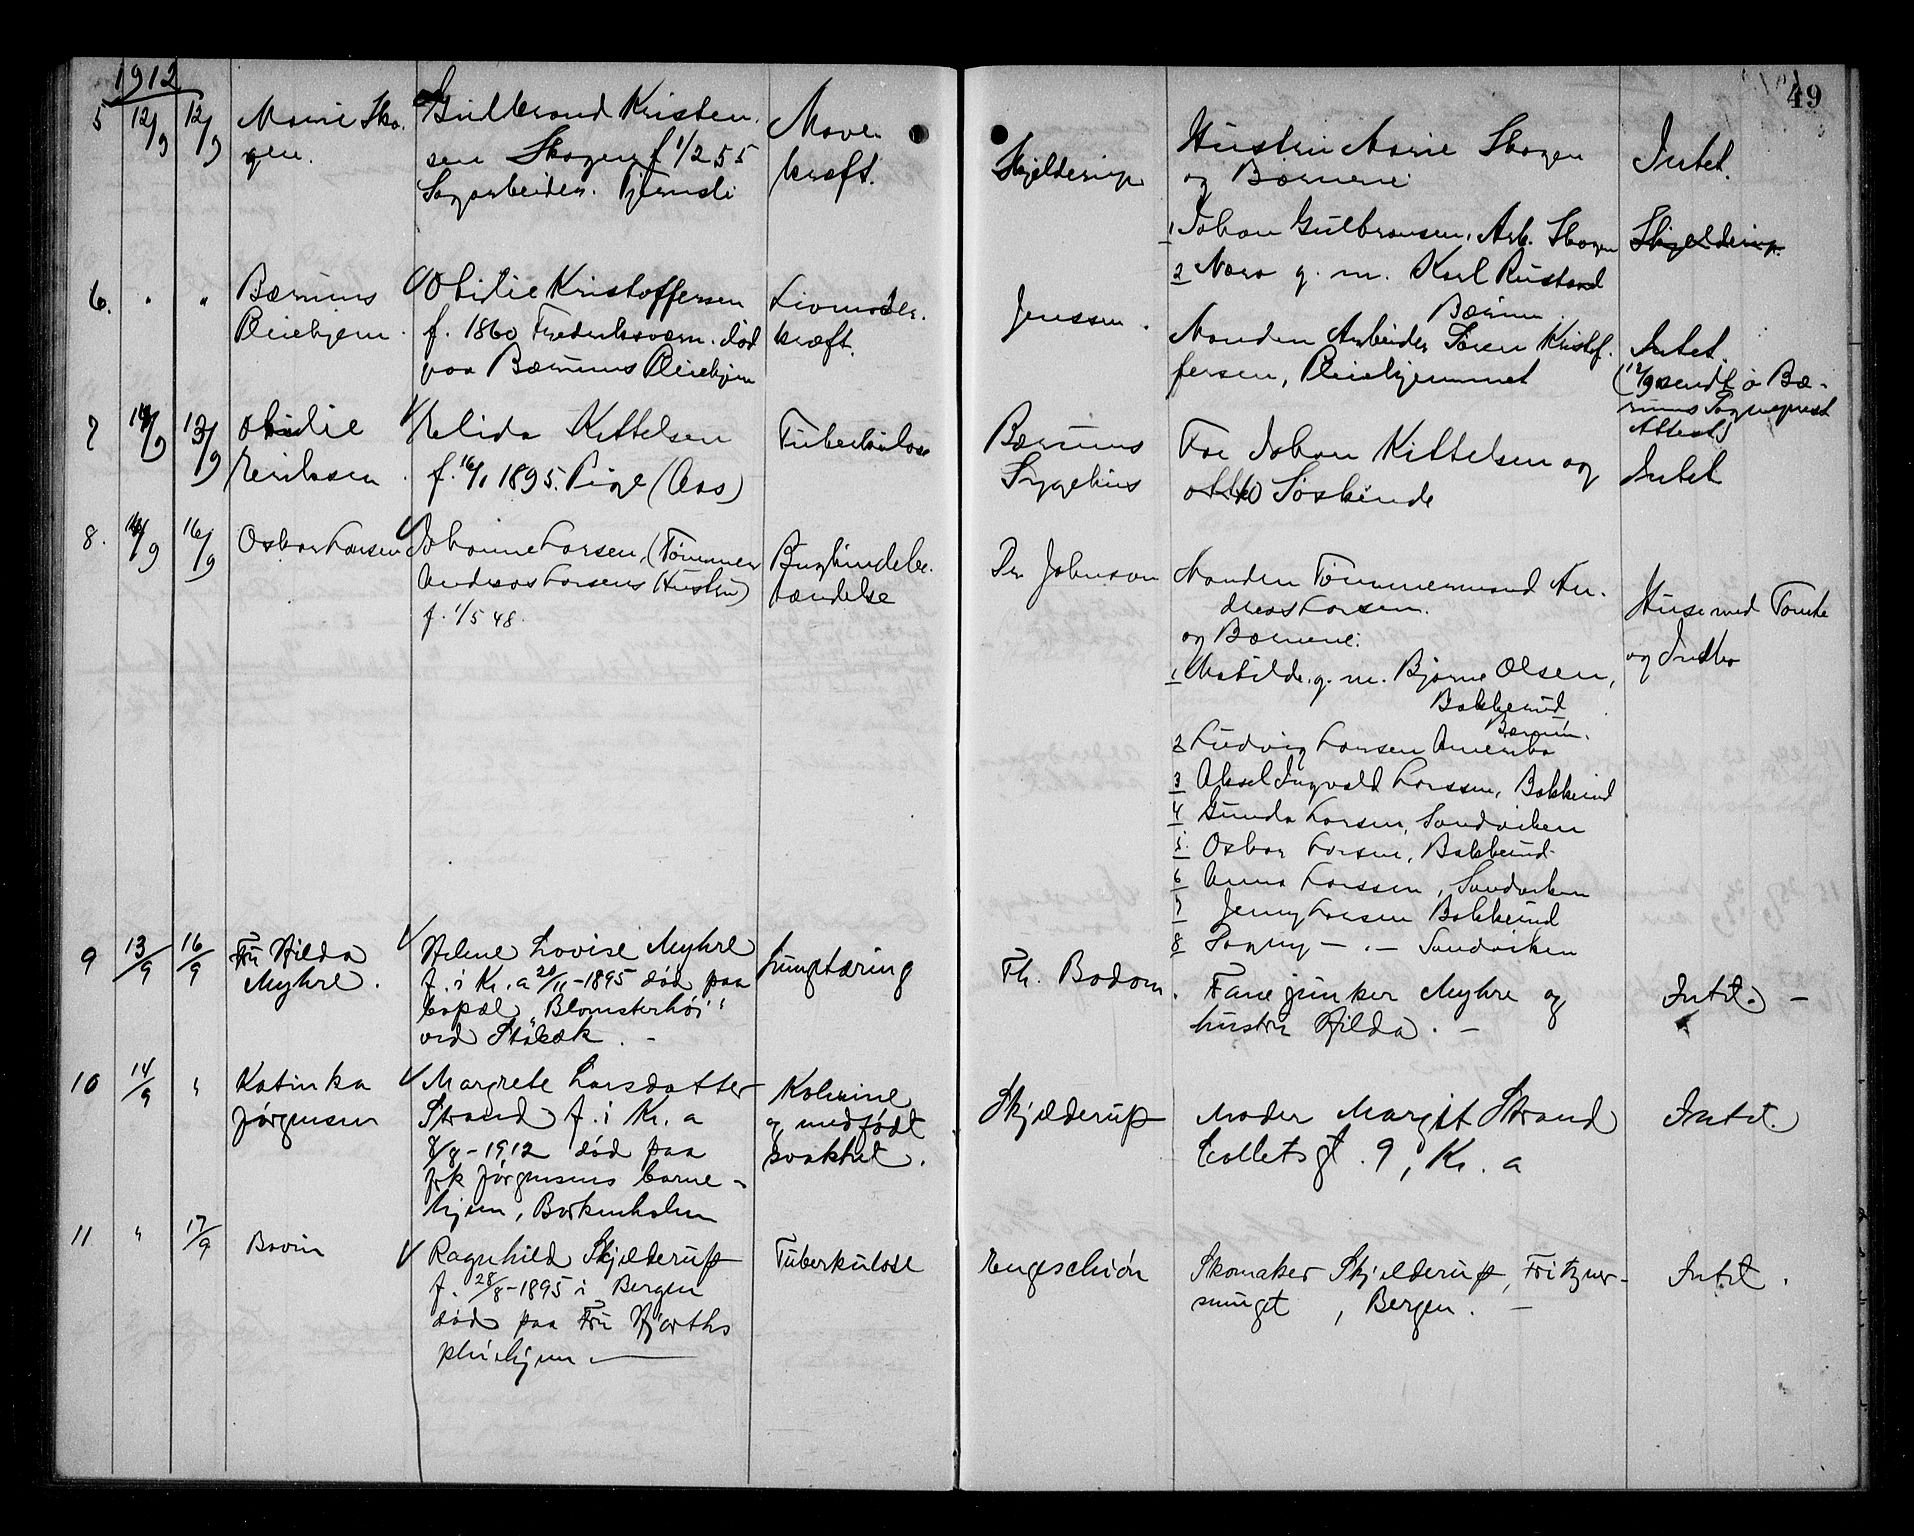 1912
49
5 12/9 12/9 Marie Sko-
gen.
Gulbrand Kristen-
sen Skogen f 1/2 55
Sagarbeider. Tjernsli
Mave-
kræft.
Skjelderup
Hustru Marie Skogen
og Børnene
1 Johan Gulbransen, Arb. Skogen
2 Nora g. m. Karl Rustand
Bærum
Intet.
Skjelderup.
6. " " Bærums
Pleiehjem.
Otilie Kristoffersen
f. 1860 Fredriksværn. død
paa Bærums Pleiehjem
Livmoder-
kræft.
Jenssen.
Manden Arbeider Søren Kristof-
fersen, Pleiehjemmet
Intet.
(12/9 sendt Bæ-
rums Sogneprest
Attest)
7 14/9 13/9 Otilie
Eriksen
Elida Kittelsen
f. 16/1 1895. Pige (Aas)
Tuberkulose
Bærums
Sygehus
For Johan Kittelsen og
otte Søskende
Intet
8. 14/9 16/9 Oskar Larsen
Johanne Larsen, (Tømmer
Andreas Larsens Hustru)
f. 1/5 48.
Bughindebe-
tændelse
Dr Johnson
Manden Tømmermand An-
dreas Larsen.
og Børnene:
1 Matilde g. m. Bjarne Olsen,
Bakkerud
Bærum.
2 Ludvig Larsen Amerika
3 Aksel Ingvald Larssen, Bakkerud
4 Gunda Larsen, Sandviken
5 Oskar Larsen, Bakkerud
6 Anna Larssen, Sandviken
7 Jenny Larsen Bakkerud
8 Dagny — " — Sandviken
Huse med Tomte
og Indbo
9 13/9 16/9 Fru Hilda
Myhre.
Helene Lovise Myhre
f. i Kr.a 20/11-1895 død paa
kapel "Blomsterhøi"
ved Stabæk. -
Lungtæring
Th. Bodom.
Fanejunker Myhre og
hustru Hilda. -
Intet. -
10 14/9 " Katinka
Jørgensen
Margrete Larsdatter
Strand f. i Kr.a
8/8-1912 død paa
frk Jørgensens barne-
hjem, Børkenholm
Kolerine
og medfødt
svakhet.
Skjelderup
Moder Margit Strand
Colletsgt. 9, Kr.a
Intet.
11 " 17/9 Bovin
Ragnhild Skjelderup
f. 28/8-1895 i Bergen
død paa Fru Hjorths
pleiehjem. —
Tuberkulose
Engeschiøn
Skomaker Skjelderup, Fritzner-
smuget, Bergen. —
Intet.